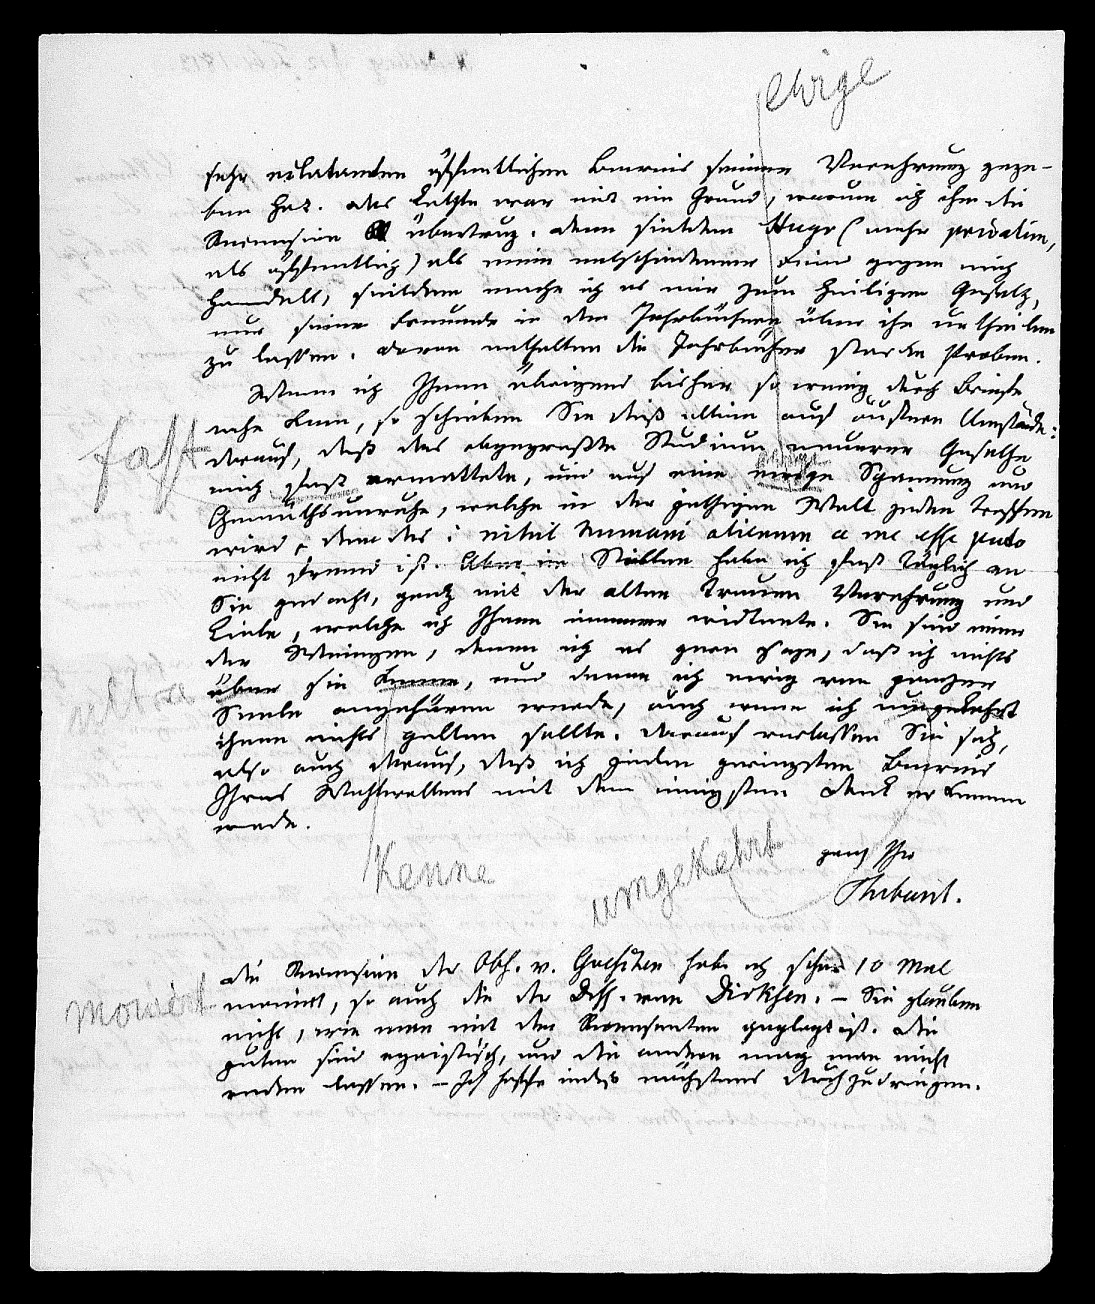 ewige
sehr eclatanten öffentlichen Beweis seiner Verehrung gege-
ben hat. Das Letzte war mit ein Grund, warum ich ihm die
Recension übertrug. Denn seitdem Hugo (mehr privatim,
als öffentlich) als mein entschiedener Feind gegen mich
handelt, seitdem mache ich es mir zum heiligen Gesetz,
nur seine Freunde in den Jahrbüchern über ihn urtheilen
zu lassen. Davon enthalten die Jahrbücher starke Proben.
Wenn ich Ihnen übrigens bisher so wenig durch Briefe
nahe kam, so schieben Sie dieß allein auf äußere Umstände:
fast
darauf, daß das abgepreßte Studium neuerer Gesetze
mich fast ermattete, und auf eine ewige Spannung und
Gemüthsunruhe, welche in der jetzigen Welt jeden treffen
wird, dem das: nihil humani alienum a me esse puto
nicht fremd ist. Aber im Stillen habe ich fast täglich an
Sie gedacht, ganz mit der alten treuen Verehrung und
Liebe, welche ich Ihnen immer widmete. Sie sind einer
der Wenigen, denen ich es gern sage, daß ich nichts
über sie kenne, und denen ich ewig von ganzer
Seele angehören werde, auch wenn ich umgekehrt
ihnen nichts gelten sollte. Darauf verlassen Sie sich,
also auch darauf, daß ich jeden geringsten Beweis
Ihres Wohlwollens mit dem innigsten Dank erkennen
werde.
Kenne
umgekehrt
ganz Ihr
Thibaut.
moniert
Die Recension der Obs. v. Goeschen habe ich schon 10 Mal
moniert, so auch die der Diss. von Dirksen. – Sie glauben
nicht, wie man mit den Recensenten geplagt ist. Die
guten sind egoistisch, und die andern mag man nicht
reden lassen. – Ich hoffe indeß nächstens durchzudringen.